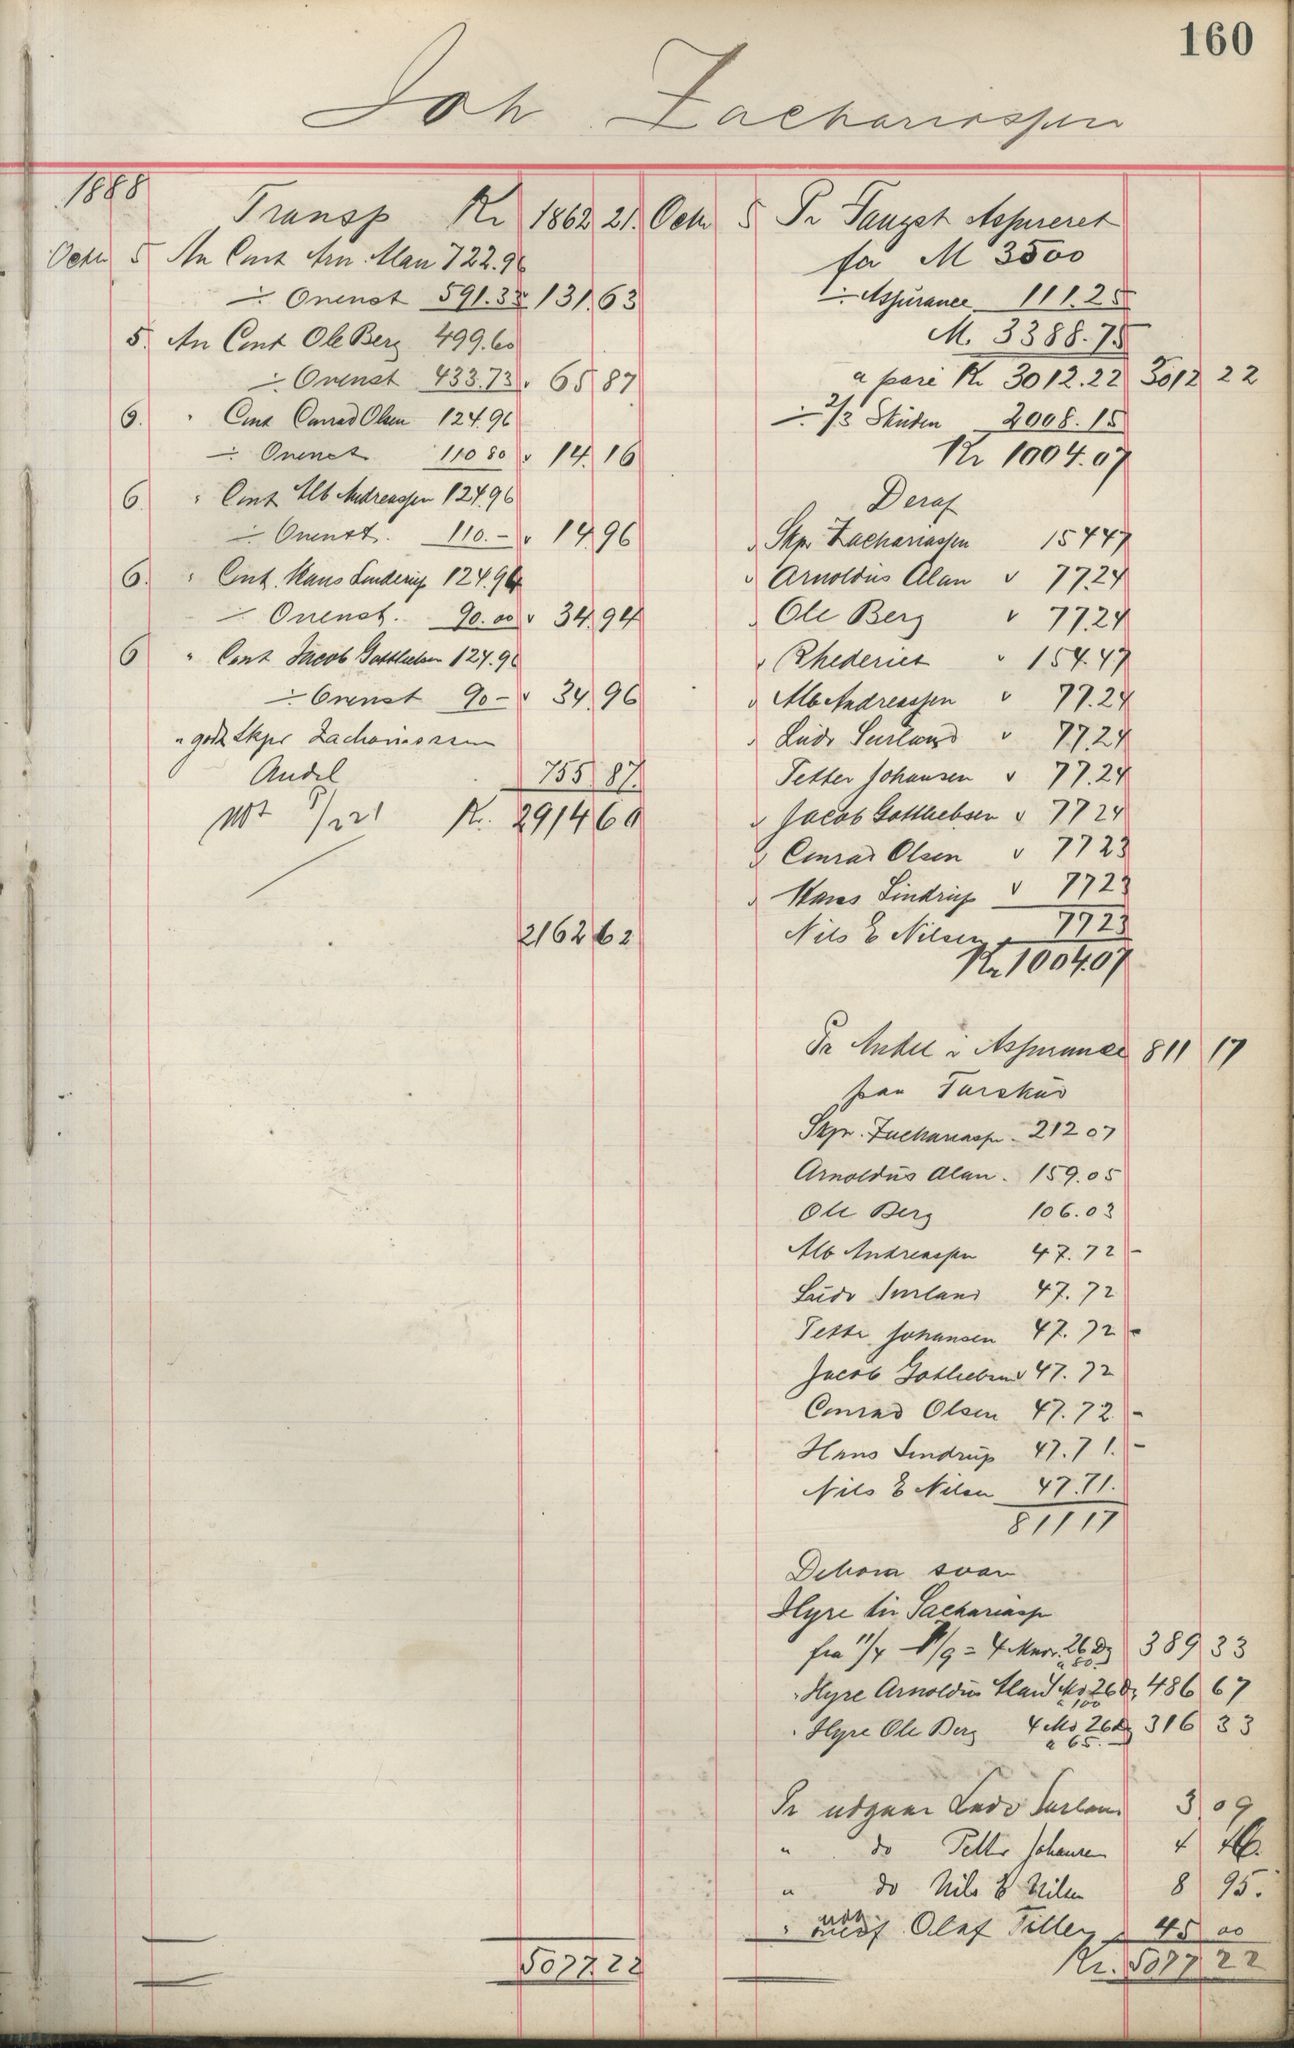 160
Joh Zachariassen
1888
Transp Kr 1862 21.
Octb 5 An Cont Arn. Alan 722.96
÷ Ovenst 591.33 131.63
5. An Cont Ole Berg 499.60
÷ Ovenst 433.73 " 65 87
6. " Cont Conrad Olsen 124.96
÷ Ovenst 110 80 " 14.16
6. " Cont Alb Andreassen 124.96
÷ Ovenst. 110.- " 14.96
6. " Cont. Hans Linderup 124.94
÷ Ovenst. 90.00 " 34.94
6 " Cont Jacob Gottliebsen 124.96
÷ Ovenst 90- " 34.96
" godt Skpr Zachariassen
Andel 755 87.
Kr. 2914 60
2162 62
5077.22
Octb 5 Pr Fangst Assureret
for M 3500
÷ Assurance 111.25
M. 3388.75
a pari Kr 3012.22 3012 22
÷ 2/3 Skuden 2008.15
Kr 1004.07
Deraf
Skpr Zachariassen 154 47
Arnoldus Alan " 77.24
Ole Berg " 77.24
Rhederiet " 154.47
Alb Andreassen " 77.24
Ludv Surland " 77.24
Petter Johansen " 77.24
Jacob Gottliebsen " 77 24
Conrad Olsen " 77 23
Hans Lindrup " 77 23
Nils E Nilsen 77 23
Kr 1004.07
Pr Andel i Assurance 811 17
paa Torskur
Skpr. Zachariassn. 212 07
Arnoldus Alan. 159.05
Ole Berg 106.03
Alb Andreassen 47.72 -
Ludv Surland 47.72
Petter Johansen 47.72 -
Jacob Gotliebsen " 47.72
Conrad Olsen 47.72 -
Hans Lindrup 47.71. -
Nils E Nilsen 47.71.
811 17
Debora svar
Hyre tir Sachariassn
fra 11/4 - /9 = 4 Mndr. 26 Dg 389 33
a 80.-
" Hyre Arnoldus Alan 4 Md 26 Dg 486 67
a 100
" Hyre Ole Berg 4 Md 26 Dg 316 33
a 65.-
Pr udgaar Ludv Surland 3 09
" do Petter Johansen 4 46.
" do Nils E Nilsen 8 95.
" Olaf Tiller 45 00
Kr. 5077 22